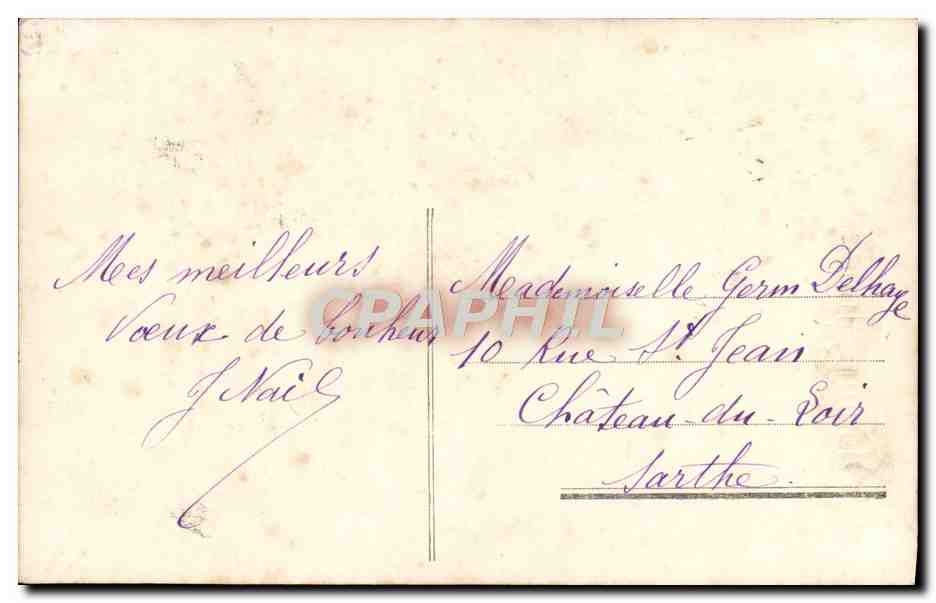 Mes meilleurs
Vœux de bonheur
J Nail
Mademoiselle Germ Delhaye
10 Rue St Jean
Château-du-Loir
Sarthe.
CPAPHIL